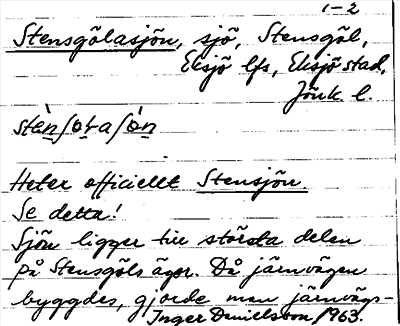 1-2
Stensgölasjön, sjö, Stensgöl,
Eksjö lfs, Eksjö stad,
Jönk. l.
Heter officiellt Stensjön.
Se detta!
Sjön ligger till största delen
på Stensgöls ägor. Då järnvägen
byggdes, gjorde man järnvägs-
Inger Danielsson, 1963.